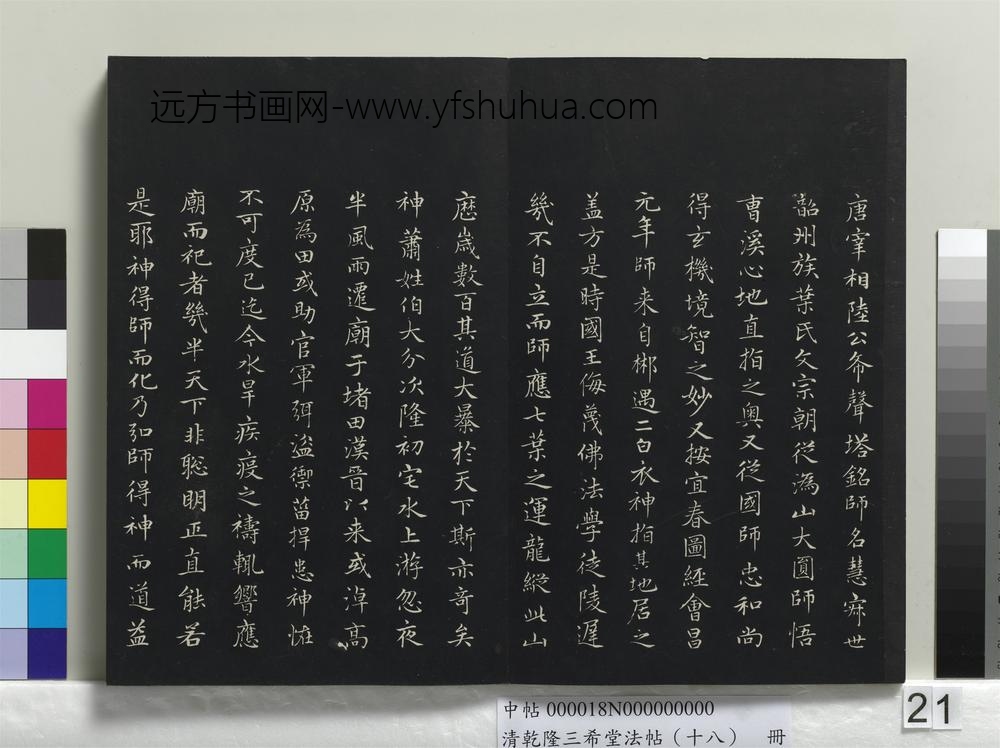 远方书画网-www.yfshuhua.com
唐宰相陸公希聲塔銘師名慧寂世
韶州族葉氏父宗朝從溈山大圓師悟
曹溪心地直指之奧又從國師忠和尚
得玄機境智之妙又按宜春圖經會昌
元年師来自郴遇二白衣神指其地居之
盖方是時國王侮蔑佛法學徒陵遲
幾不自立而師應七葉之運龍縱此山
歷歲數百其道大暴於天下斯亦奇矣
神蕭姓伯大分次隆初宅水上游忽夜
半風雨遷廟于堵田漢晉以来或淖高
原為田或助官軍弭盜禦菑捍患神恠
不可度已迄今水旱疾疫之禱輒響應
廟而祀者幾半天下非聡明正直能若
是耶神得師而化乃弘師得神而道益
中帖 000018N000000000
清乾隆三希堂法帖（十八） 冊
21